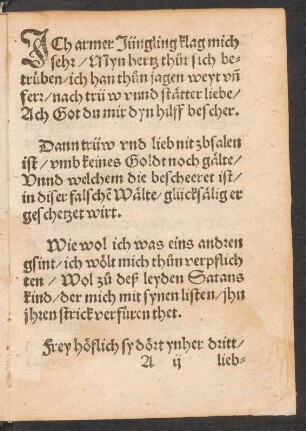 ICh armer Jüngling klag mich
sehr / Myn hertz thůt sich be-
trüben / ich han thůn jagen weyt vñ
ferr / nach trüw vnnd stätter liebe /
Ach Got du mir dyn hilff bescher.
Dann trüw vnd lieb nit zbsalen
ist / vmb keines Goldt noch gälte /
Vnnd welchem die bescheeret ist /
in diser falschẽ Wälte / glücksälig er
geschetzet wirt.
Wie wol ich was eins andren
gsint / ich wölt mich thůn verpflich
ten / Wol zů deß leyden Satans
kind / der mich mit synen listen / jhn
jhren strick verfüren thet.
Frey höflich sy dört ynher dritt /
A ij lieb-